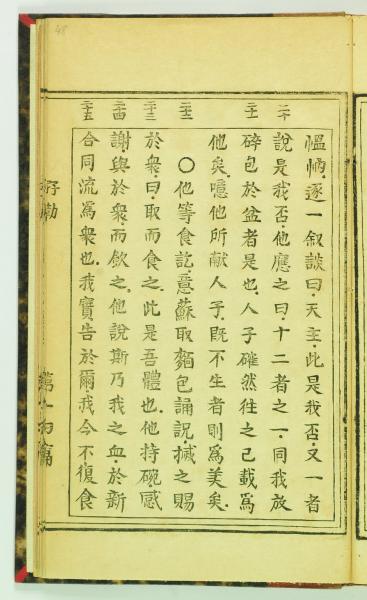 慍恦逐一叙談曰天主此是我否又一者
二十
說是我否他應之曰十二者之一同我放
二十一
碎包於盆者是也人子確然往之已載為
他矣噫他所献人子既不生者則為美矣
二十二
○他等食訖意蘇取麵包誦説搣之賜
二十三
於衆曰取而食之此是吾體也他持碗感
二十四
謝與於衆而飲之他說斯乃我之血於新
二十五
合同流為衆也我實告於爾我今不復食
第十四篇
48